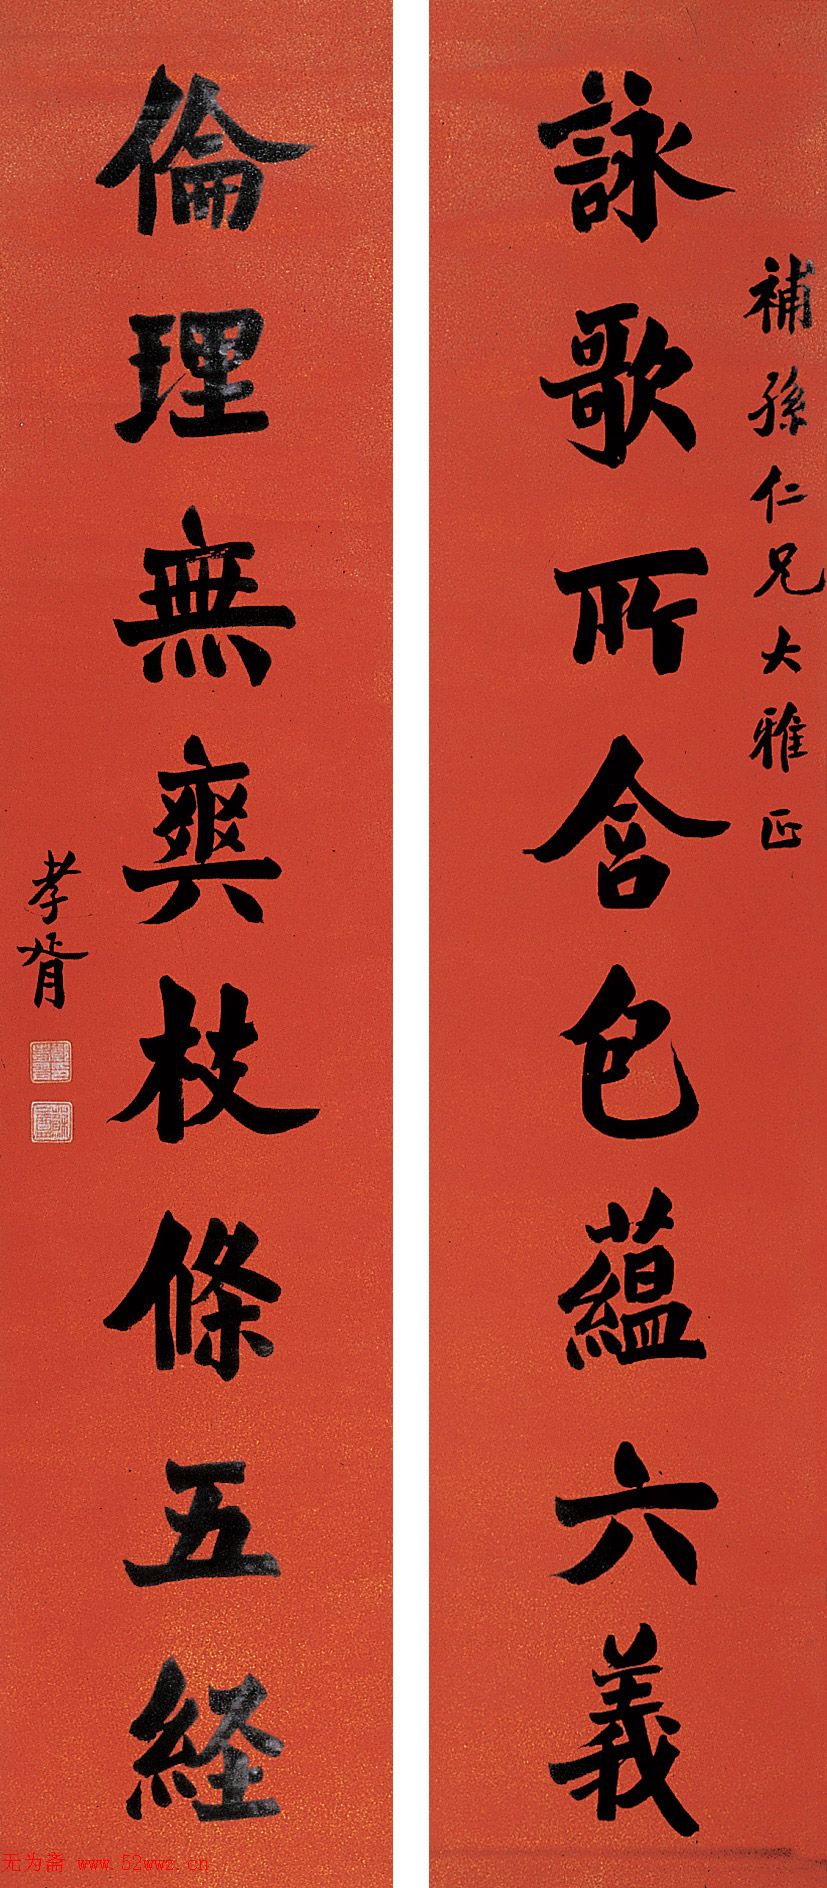 補孫仁兄大雅正
詠歌所含包蘊六義
倫理無爽枝條五経
孝胥
无为斋 www.52wwz.cn